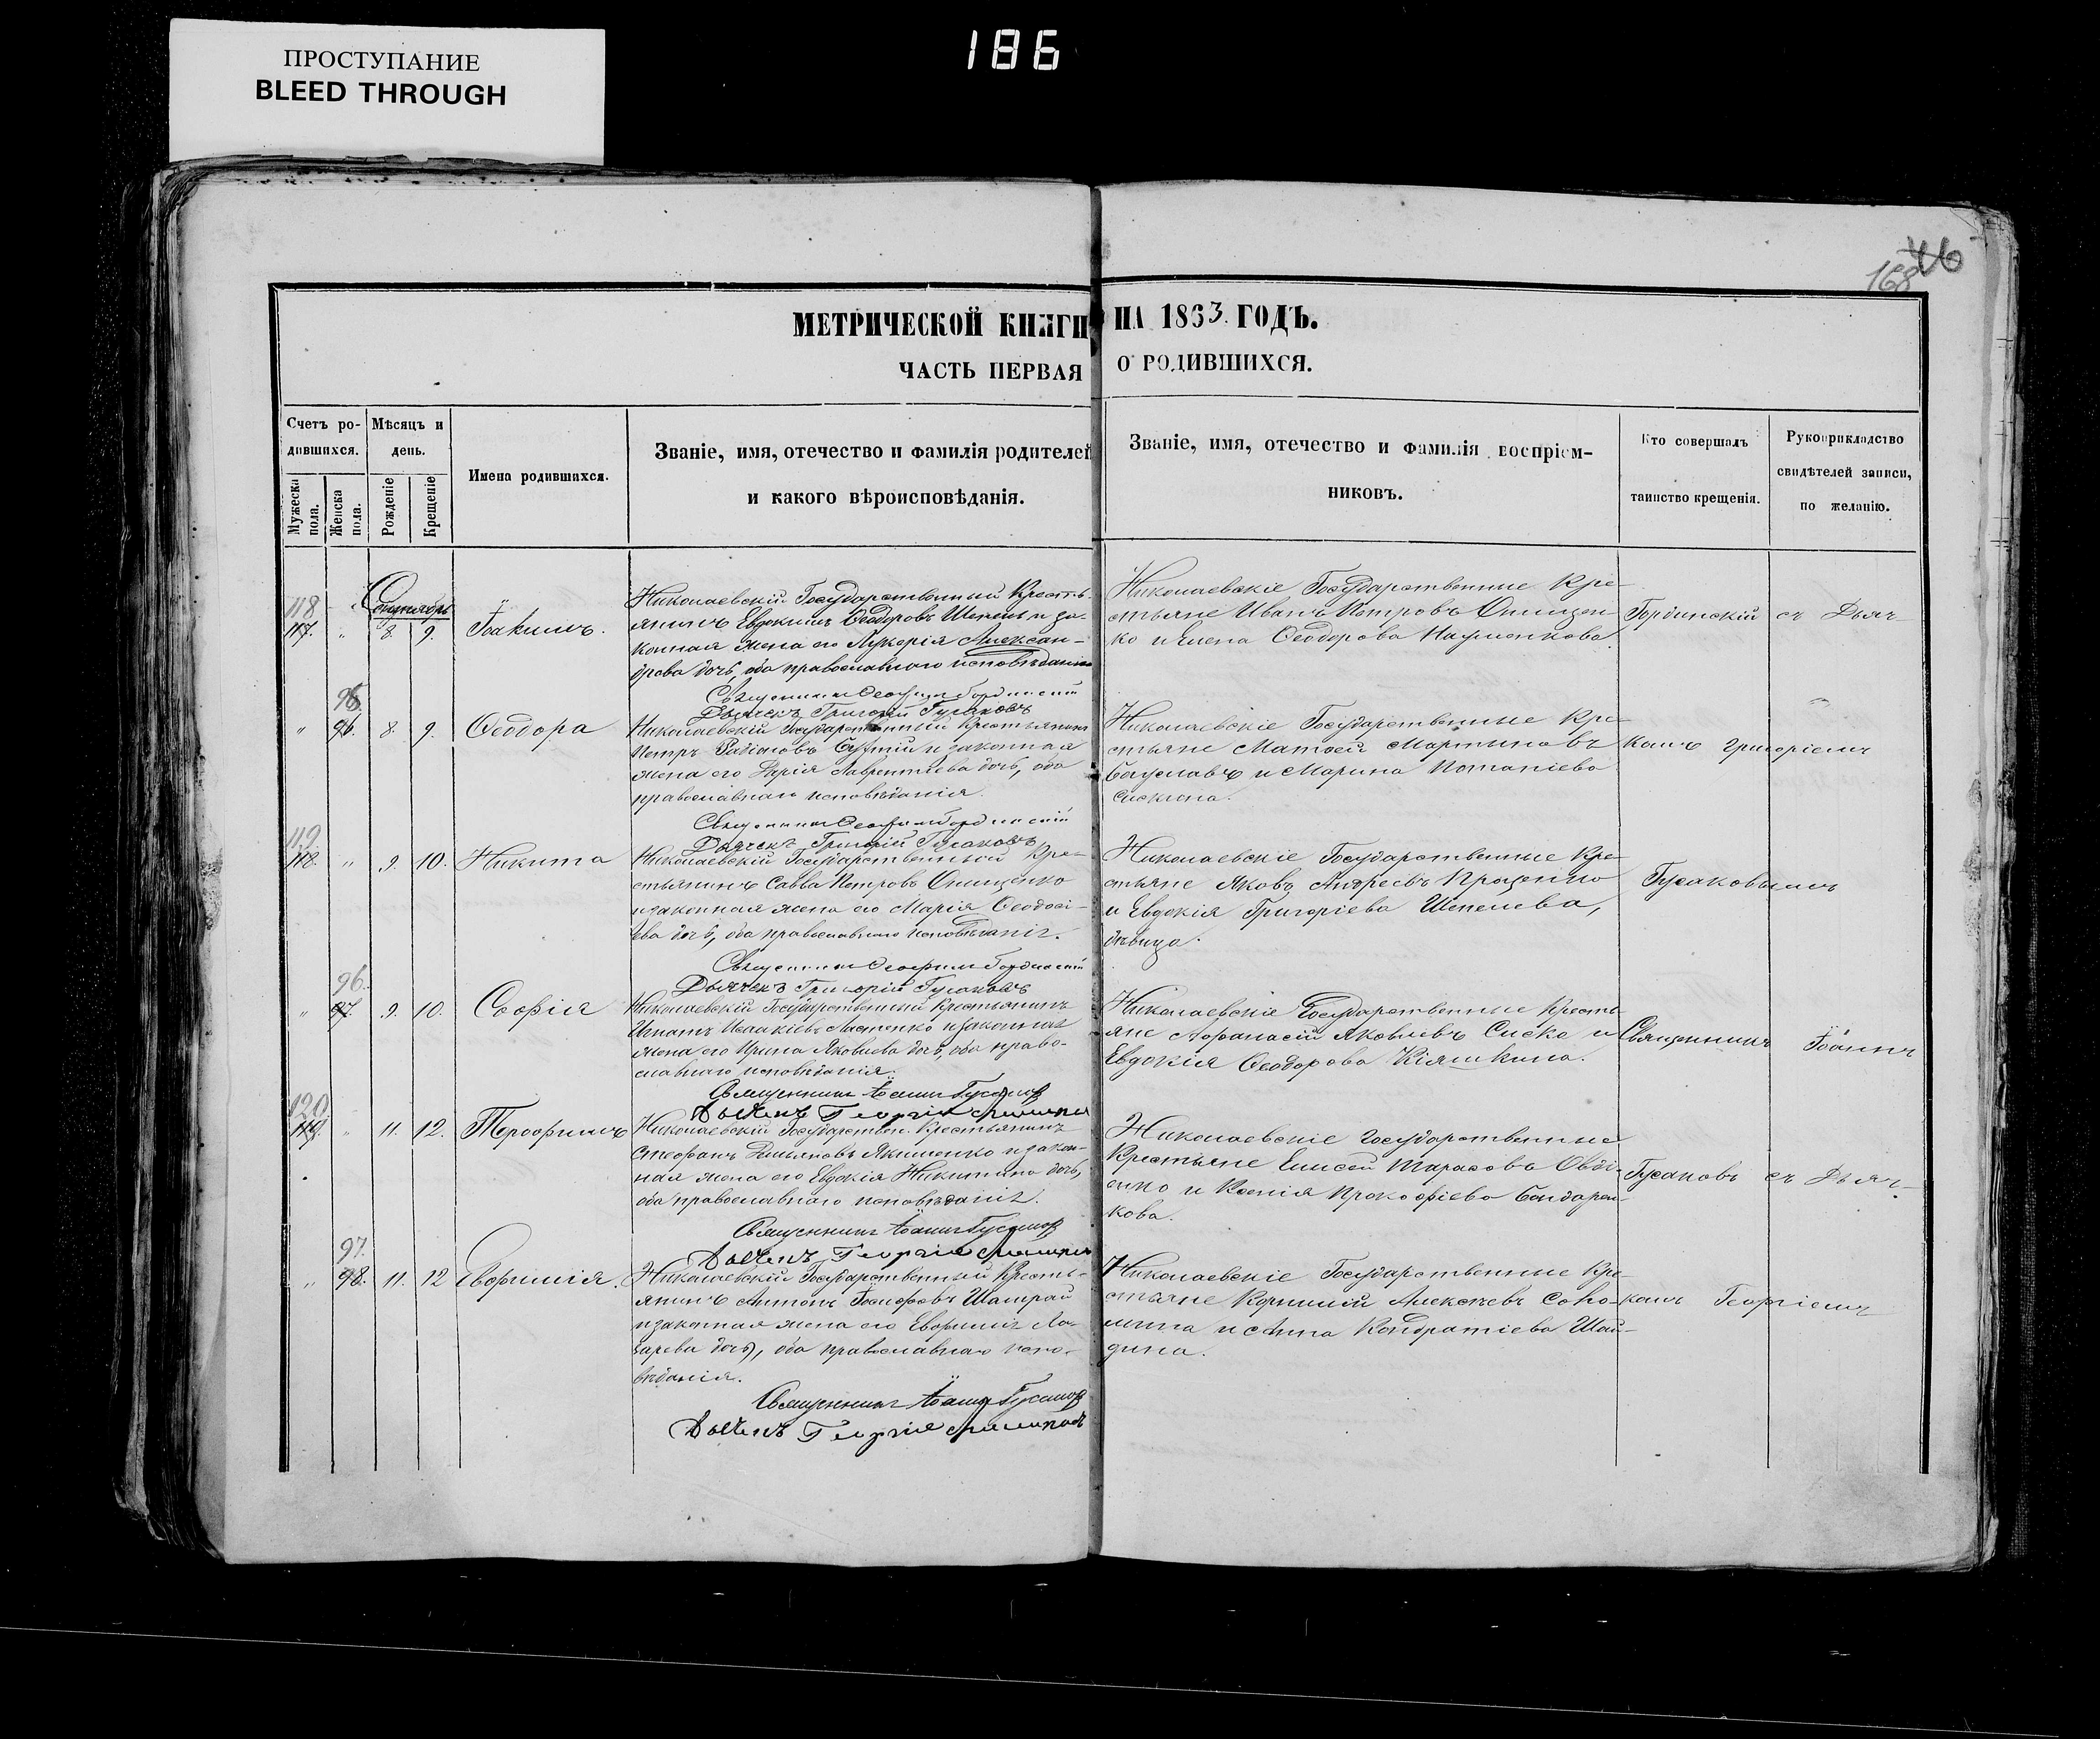 ПРОСТУПАНИЕ
BLEED THROUGH
186
168
46
МЕТРИЧЕСКОЙ КНИГИ НА 1863 ГОДЪ.
ЧАСТЬ ПЕРВАЯ О РОДИВШИХСЯ.
Счетъ ро-
дившихся.
Мужеска пола.
Женска пола.
Мѣсяцъ и
день.
Рожденіе
Крещеніе
Имена родившихся.
Званіе, имя, отечество и фамилія родителей
и какого вѣроисповѣданія.
Званіе, имя, отечество и фамилія воспріем-
никовъ.
Кто совершалъ
таинство крещенія.
Рукоприкладство
свидѣтелей записи,
по желанію.
118
117. " 8. 9. Іоакимъ.
Николаевскій Государственный Кресть-
янинъ Евдокимъ Ѳеодоровъ и за-
конная жена его Лукерія Алексан-
дрова дочь, оба православнаго исповѣданія
Николаевскіе Государственные Кре-
стьяне Иванъ Петровъ Онищен-
ко и Елена Ѳеодорова Науменкова.
Гординскій съ Дьяч-
Священникъ Гординскій
Дьячекъ Григорій Гусаковъ
95.
" 96. 8. 9. Ѳеодора
Николаевскій Государственный Крестьянинъ
Петръ и законная
жена его Дарія Лаврентіева дочь, оба
православнаго исповѣданія.
Николаевскіе Государственные Кре-
стьяне Матвей Мартиновъ
Богуславъ и Марина Потапіева
комъ Григоріемъ
Священникъ Гординскій
Дьячекъ Григорій Гусаковъ
119.
118. " 9. 10. Никита
Николаевскій Государственный Кре-
стьянинъ Савва Петровъ Онищенко
и законная жена его Марія Ѳеодосі-
ева дочь, оба православнаго исповѣданія.
Николаевскіе Государственные Кре-
стьяне Яковъ Андреевъ Проценко
и Евдокія Григоріева Шепелева,
дѣвица.
Гусаковымъ
Священникъ Гординскій
Дьячекъ Григорій Гусаковъ
96.
" 97. 9. 10. Софія
Николаевскій Государственный Крестьянинъ
Игнатъ Исаакіевъ и законная
жена его Ирина Яковлева дочь, оба право-
славнаго исповѣданія.
Николаевскіе Государственные Кресть-
яне Афанасій Яковлевъ Сиска и
Евдокія Ѳеодорова Кіяшкина.
Священникъ Іоаннъ
Священникъ Іоаннъ Гусаковъ
Дьячекъ Георгій
120.
119. " 11. 12.
Николаевскій Государствен. Крестьянинъ
Стефанъ Демьяновъ Якименко и закон-
ная жена его Евдокія Никитина дочь,
оба православнаго исповѣданія.
Николаевскіе Государственные
Крестьяне Елисей Тарасовъ Овді-
енко и Ксенія Прокофіева Бондарен-
кова.
Гусаковъ съ Дьяч-
Священникъ Іоаннъ Гусаковъ
Дьячекъ Георгій
97.
" 98. 11. 12 Евфимія.
Николаевскій Государственный Кресть-
янинъ Антонъ Іосифовъ Шамрай
и законная жена его Евфимія Ла-
зарева дочь, оба православнаго испо-
вѣданія.
Николаевскіе Государственные Кре-
стьяне Корнилій Алексѣевъ Соко-
и Анна Кондратіева
комъ Георгіемъ
Священникъ Іоаннъ Гусаковъ
Дьячекъ Георгій